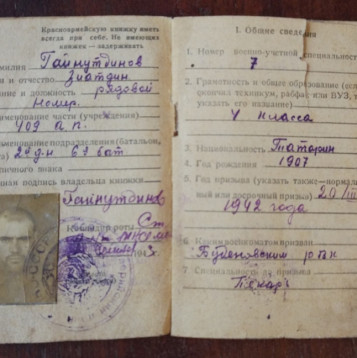 Красноармейскую книжку иметь
всегда при себе. Не имеющих
книжек — задерживать
Гайнутдинов
и отчество Зиатдин
ание и должность рядовой
Номер.
именование части (учреждения)
409 а.п.
именование подразделения (батальон,
2й д-н 6й бат
ичного знака
ная подпись владельца книжки
Гайнутдинов
Командир роты Ст.
I. Общие сведения
1. Номер военно-учетной специальности
7
2. Грамотность и общее образование
окончил техникум, рабфак или ВУЗ,
указать его название)
4 класса
3. Национальность Татарин
4. Год рождения 1907
5. Год призыва (указать также—нормаль-
ный или досрочный призыв) 20/III
1942 года
6. Каким военкоматом призван
Буденовским рвк
7. Специальность до призыва
Пекарь